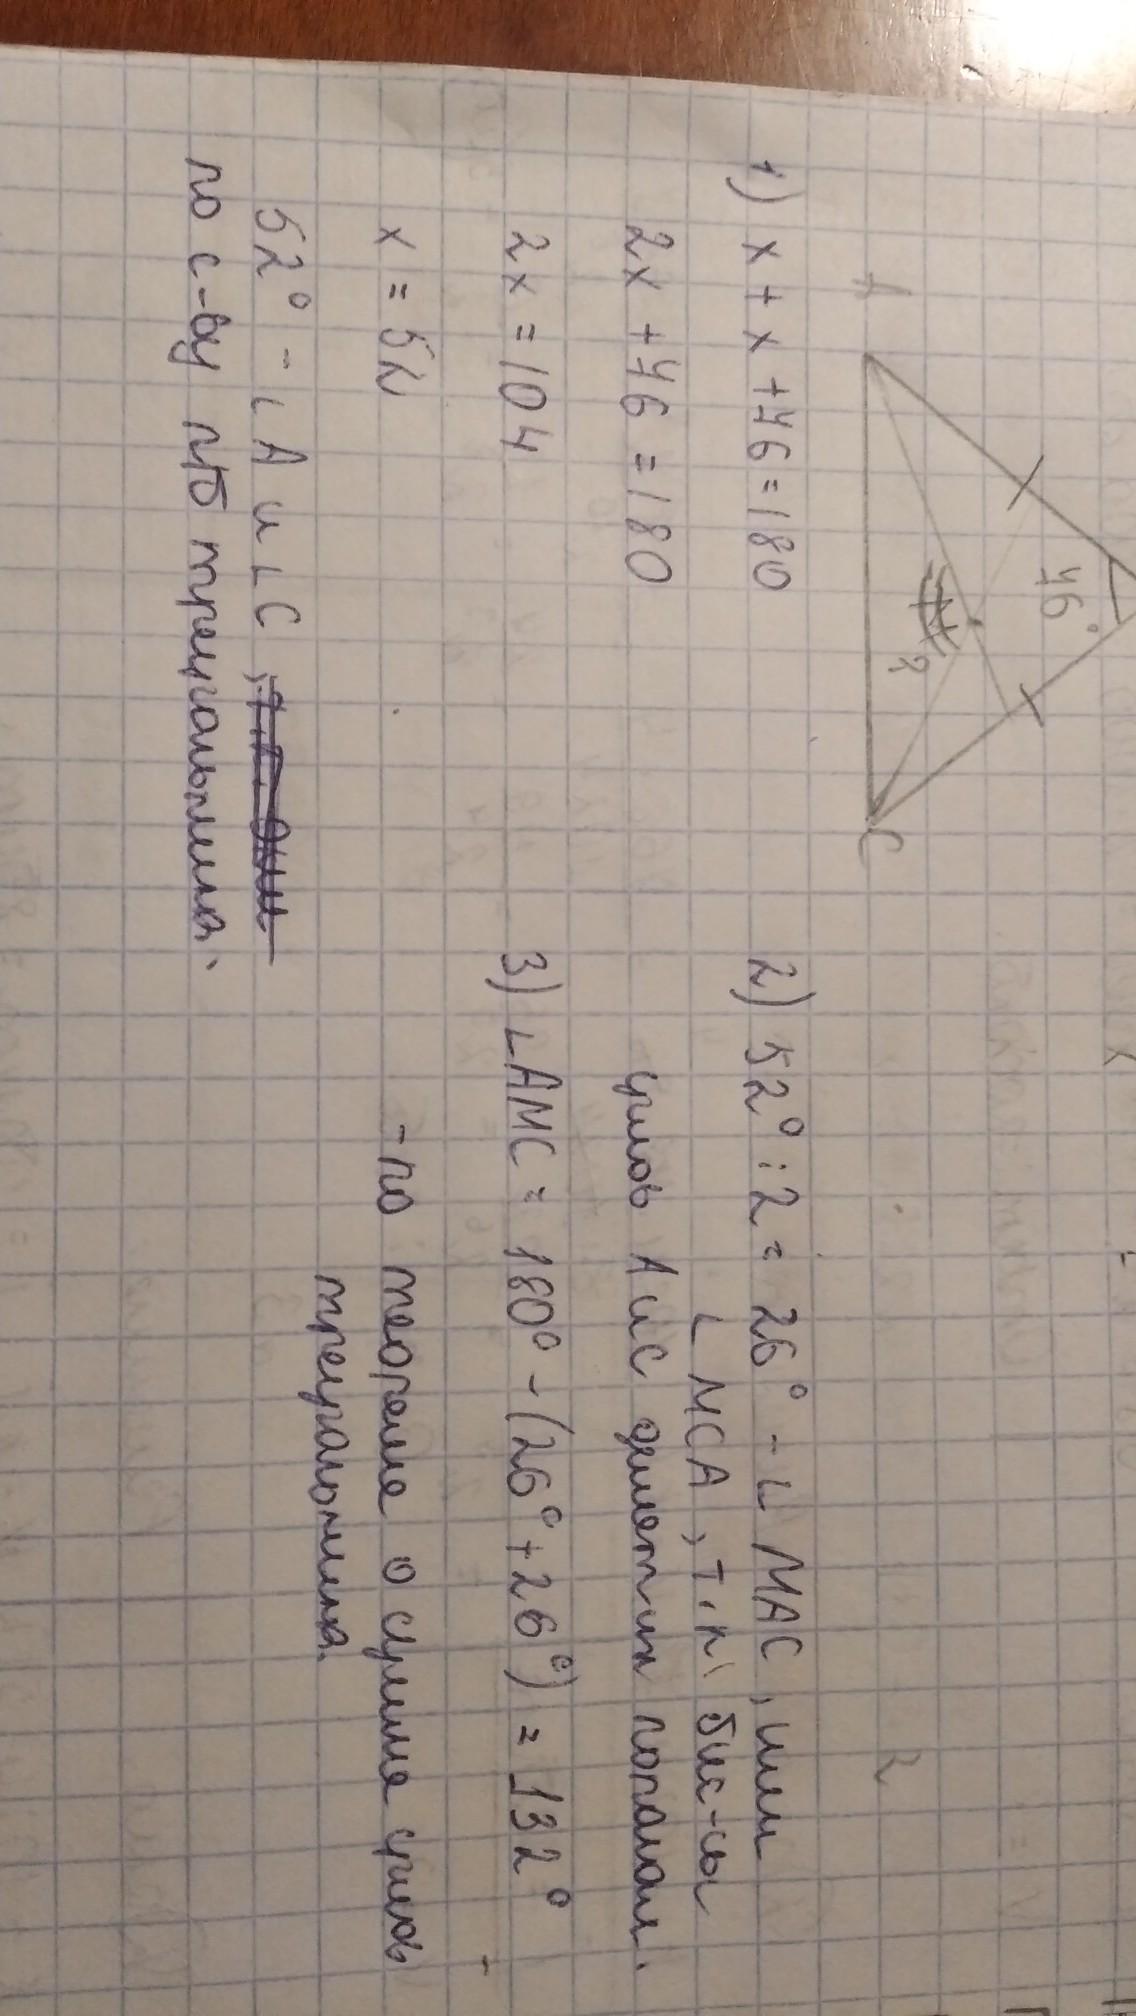 A
46°
?
C
1) x + x + 46 = 180
2x + 46 = 180
2x = 104
x = 52
52° - ∟A и ∟C,
по с-ву р/б треугольника.
2) 52° : 2 = 26° - ∟MAC, или
∟MCA, т.к. бис-сы
углов A и C делят их пополам.
3) ∟AMC = 180° - (26° + 26°) = 132°
- по теореме о сумме углов
треугольника.